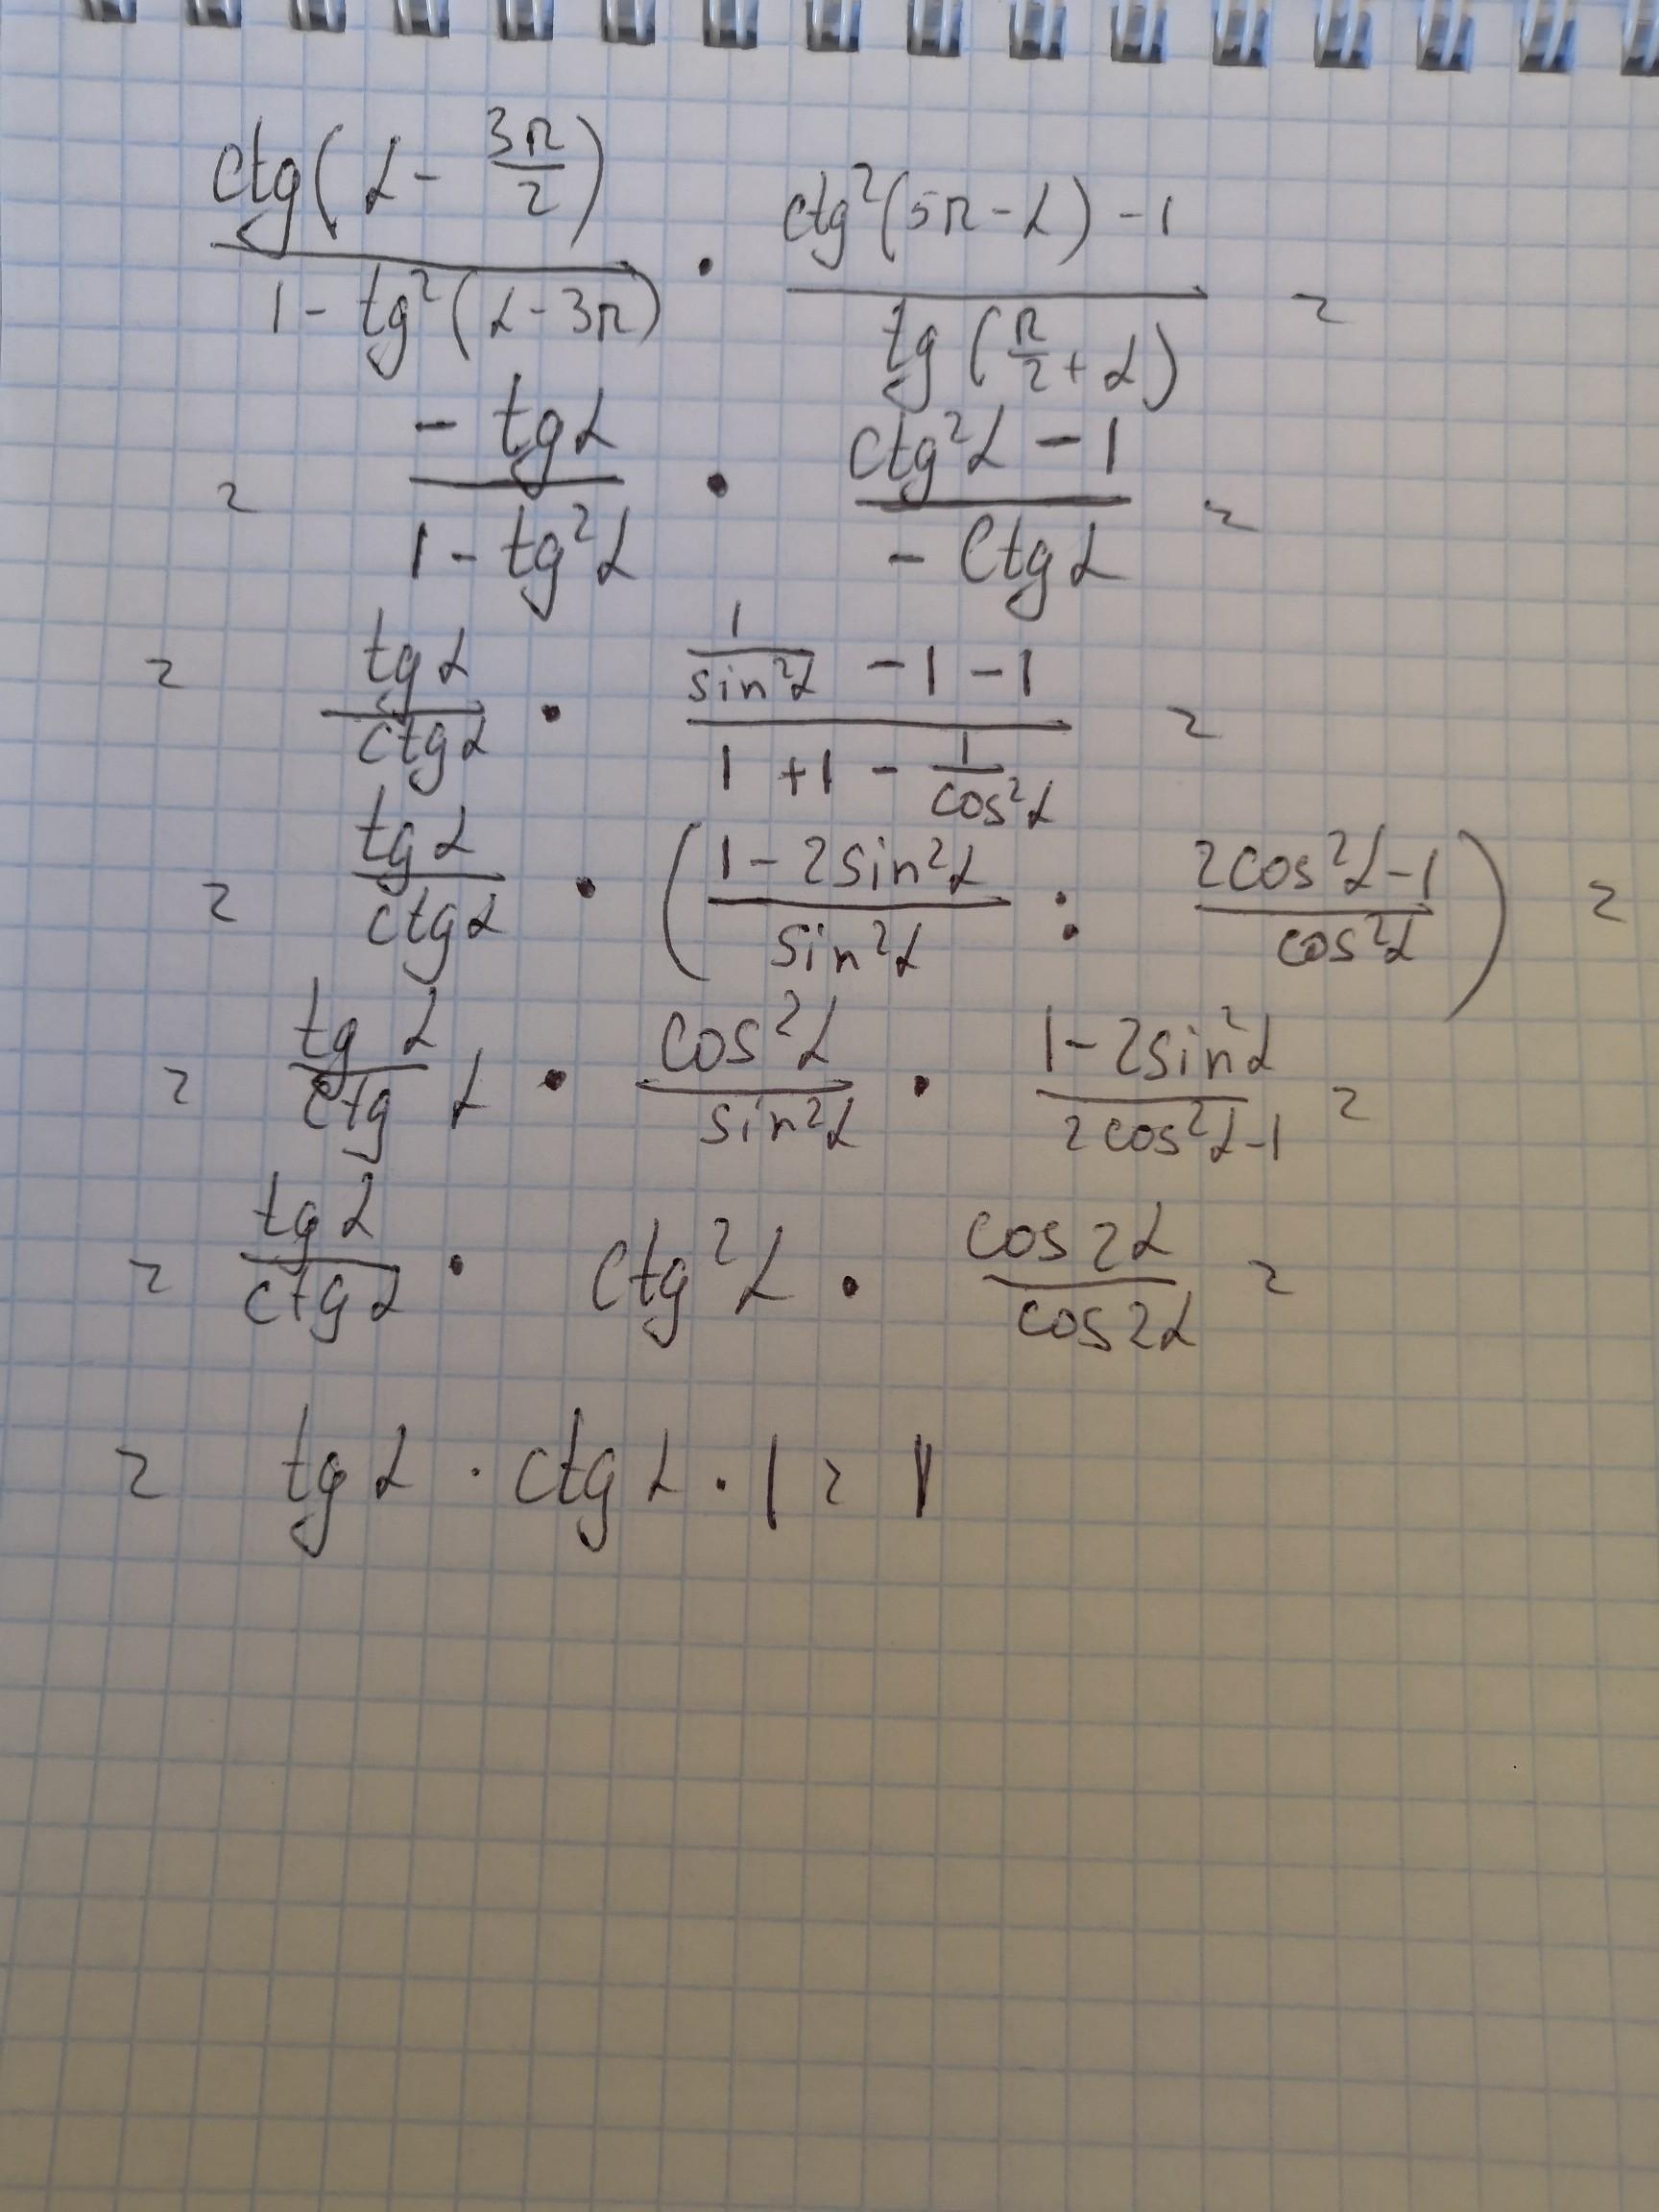 ctg(α - 3π/2) / 1 - tg²(α - 3π) · ctg²(5π - α) - 1 / tg(π/2 + α) =
= - tgα / 1 - tg²α · ctg²α - 1 / - ctgα =
= tgα / ctgα · 1/sin²α - 1 - 1 / 1 + 1 - 1/cos²α =
= tgα / ctgα · (1 - 2sin²α / sin²α : 2cos²α - 1 / cos²α) =
= tg α / ctg α · cos²α / sin²α · 1 - 2sin²α / 2cos²α - 1 =
= tgα / ctgα · ctg²α · cos2α / cos2α =
= tgα · ctgα · 1 = 1